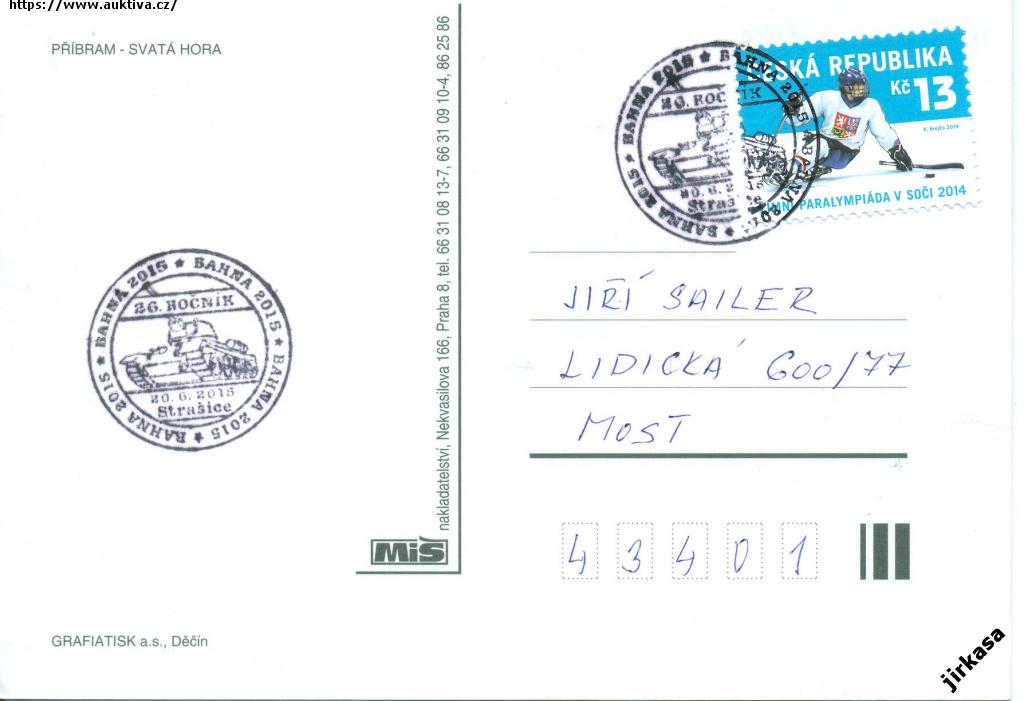 https://www.auktiva.cz/
PŘÍBRAM - SVATÁ HORA
BAHNA 2015 ★ BAHNA 2015 ★ BAHNA 2015 ★ BAHNA 2015 ★
26. ROČNÍK
20. 6. 2015
Strašice
nakladatelství, Nekvasilova 166, Praha 8, tel. 66 31 08 13-7, 66 31 09 10-4, 86 25 86
MiŠ
GRAFIATISK a.s., Děčín
BAHNA 2015 ★ BAHNA 2015 ★ BAHNA 2015 ★ BAHNA 2015
26. ROČNÍK
20. 6. 2015
Strašice
ČESKÁ REPUBLIKA
Kč 13
ZIMNÍ PARALYMPIÁDA V SOČI 2014
JIŘÍ SAILER
LIDICKÁ 600/77
MOST
43401
jirkasa